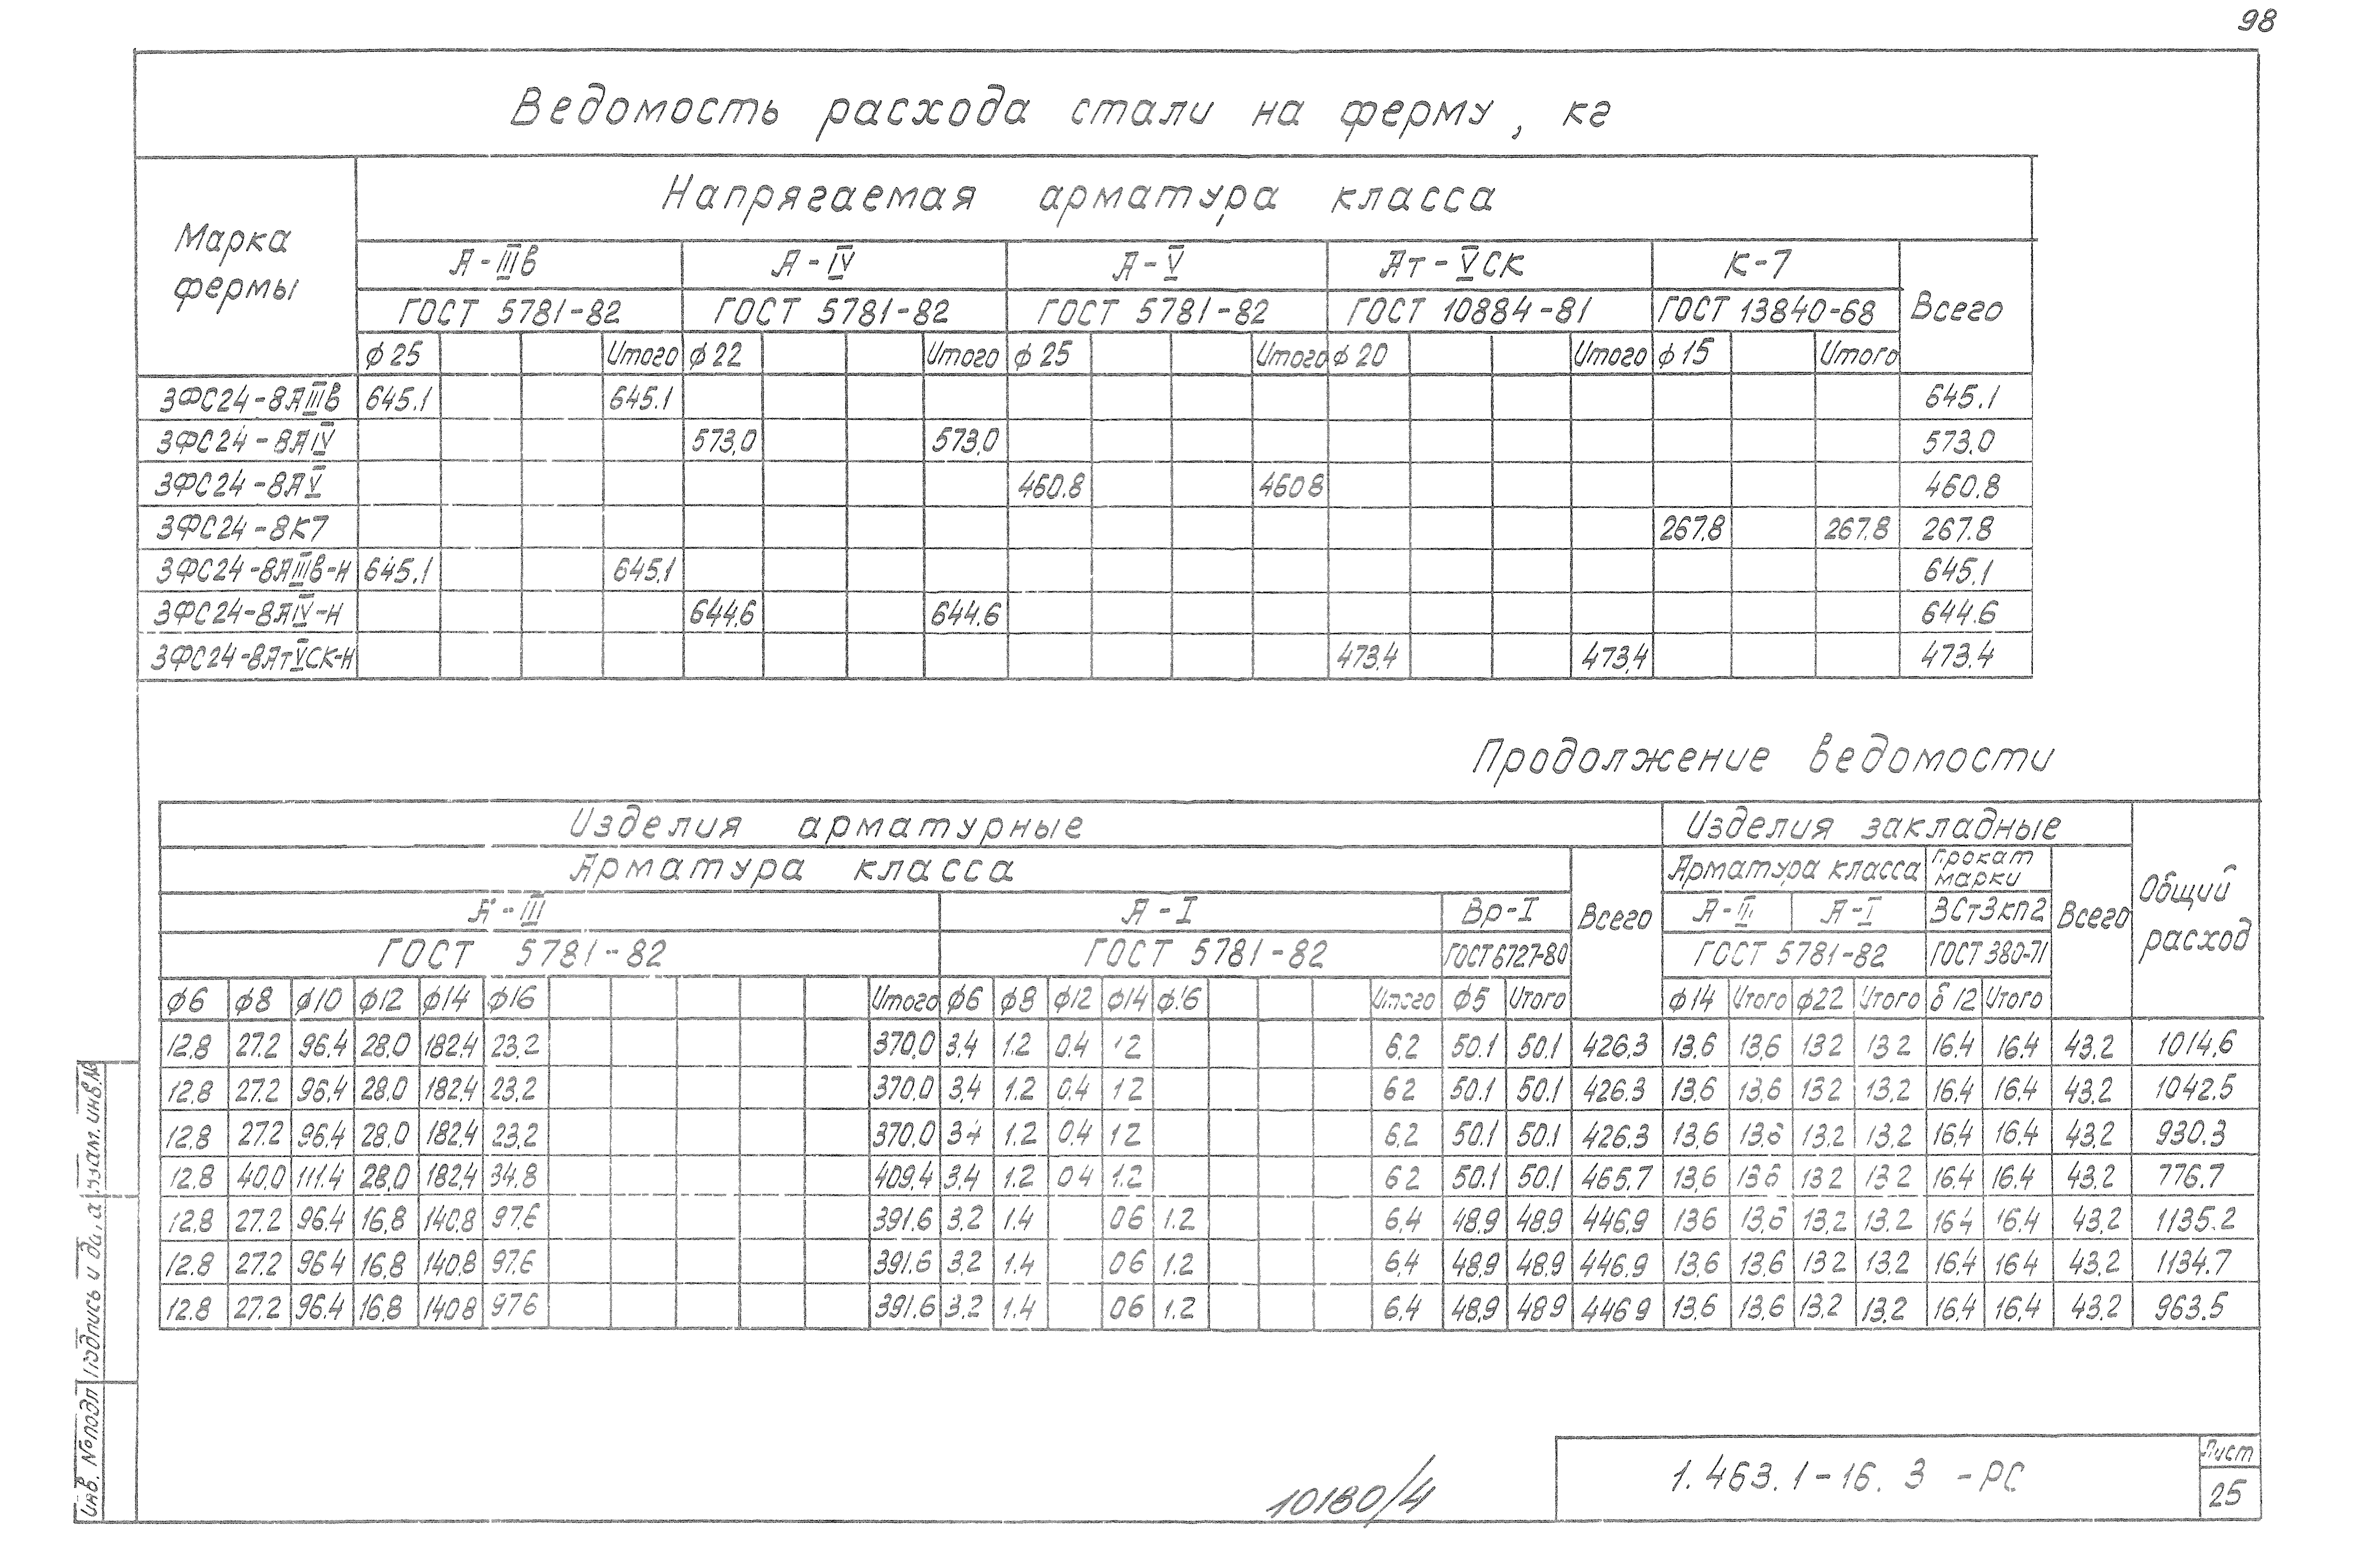 98
Ведомость расхода стали на ферму, кг
Марка фермы
Напрягаемая арматура класса
А-IIIв А-IV А-V Ат-VСК К-7 Всего
ГОСТ 5781-82 ГОСТ 5781-82 ГОСТ 5781-82 ГОСТ 10884-81 ГОСТ 13840-68
ф25 Итого ф22 Итого ф25 Итого ф20 Итого ф15 Итого
3ФС24-8АIIIв 645.1 645.1 645.1
3ФС24-8АIV 573,0 573,0 573,0
3ФС24-8АV 460.8 460 8 460.8
3ФС24-8К7 267.8 267.8 267.8
3ФС24-8АIIIв-Н 645.1 645,1 645.1
3ФС24-8АIV-Н 644.6 644.6 644.6
3ФС24-8АтVСК-Н 473.4 473,4 473.4
Продолжение ведомости
Изделия арматурные Изделия закладные Общий расход
Арматура класса Всего Арматура класса Прокат марки Всего
А-III А-I Вр-I А-III А-I ВСт3кп2
ГОСТ 5781-82 ГОСТ 5781-82 ГОСТ 6727-80 ГОСТ 5781-82 ГОСТ 380-71
ф6 ф8 ф10 ф12 ф14 ф16 Итого ф6 ф8 ф12 ф14 ф16 Итого ф5 Итого ф14 Итого ф22 Итого δ12 Итого
12.8 27.2 96.4 28.0 182.4 23.2 370.0 3.4 1.2 0.4 1 2 6.2 50.1 50.1 426.3 13,6 13,6 13 2 13 2 16.4 16.4 43,2 1014,6
12.8 27.2 96,4 28.0 182.4 23.2 370.0 3,4 1.2 0.4 1 2 6 2 50.1 50.1 426.3 13,6 13,6 13 2 13,2 16.4 16.4 43,2 1042.5
12.8 27.2 96.4 28.0 182.4 23,2 370,0 3 4 1.2 0.4 1 2 6,2 50.1 50.1 426.3 13,6 13,6 13,2 13,2 16.4 16.4 43,2 930.3
12.8 40,0 111.4 28,0 182,4 34.8 409.4 3,4 1.2 0 4 1.2 6 2 50.1 50.1 465.7 13,6 13 6 13 2 13 2 16.4 16.4 43,2 776.7
12.8 27.2 96.4 16,8 140,8 97.6 391.6 3,2 1.4 0 6 1.2 6,4 48,9 48,9 446,9 13 6 13,6 13,2 13.2 16 4 16.4 43,2 1135.2
12.8 27.2 96 4 16,8 140,8 97.6 391.6 3,2 1.4 0 6 1.2 6,4 48,9 48,9 446,9 13,6 13,6 13 2 13,2 16,4 16 4 43,2 1134.7
12.8 27.2 96.4 16.8 140 8 97 6 391.6 3.2 1.4 0 6 1.2 6,4 48,9 48 9 446 9 13,6 13,6 13,2 13,2 16,4 16,4 43,2 963.5
Инв. № подл Подпись и дата Взам. инв.№
10180/4
1.463.1-16.3 -РС
Лист
25